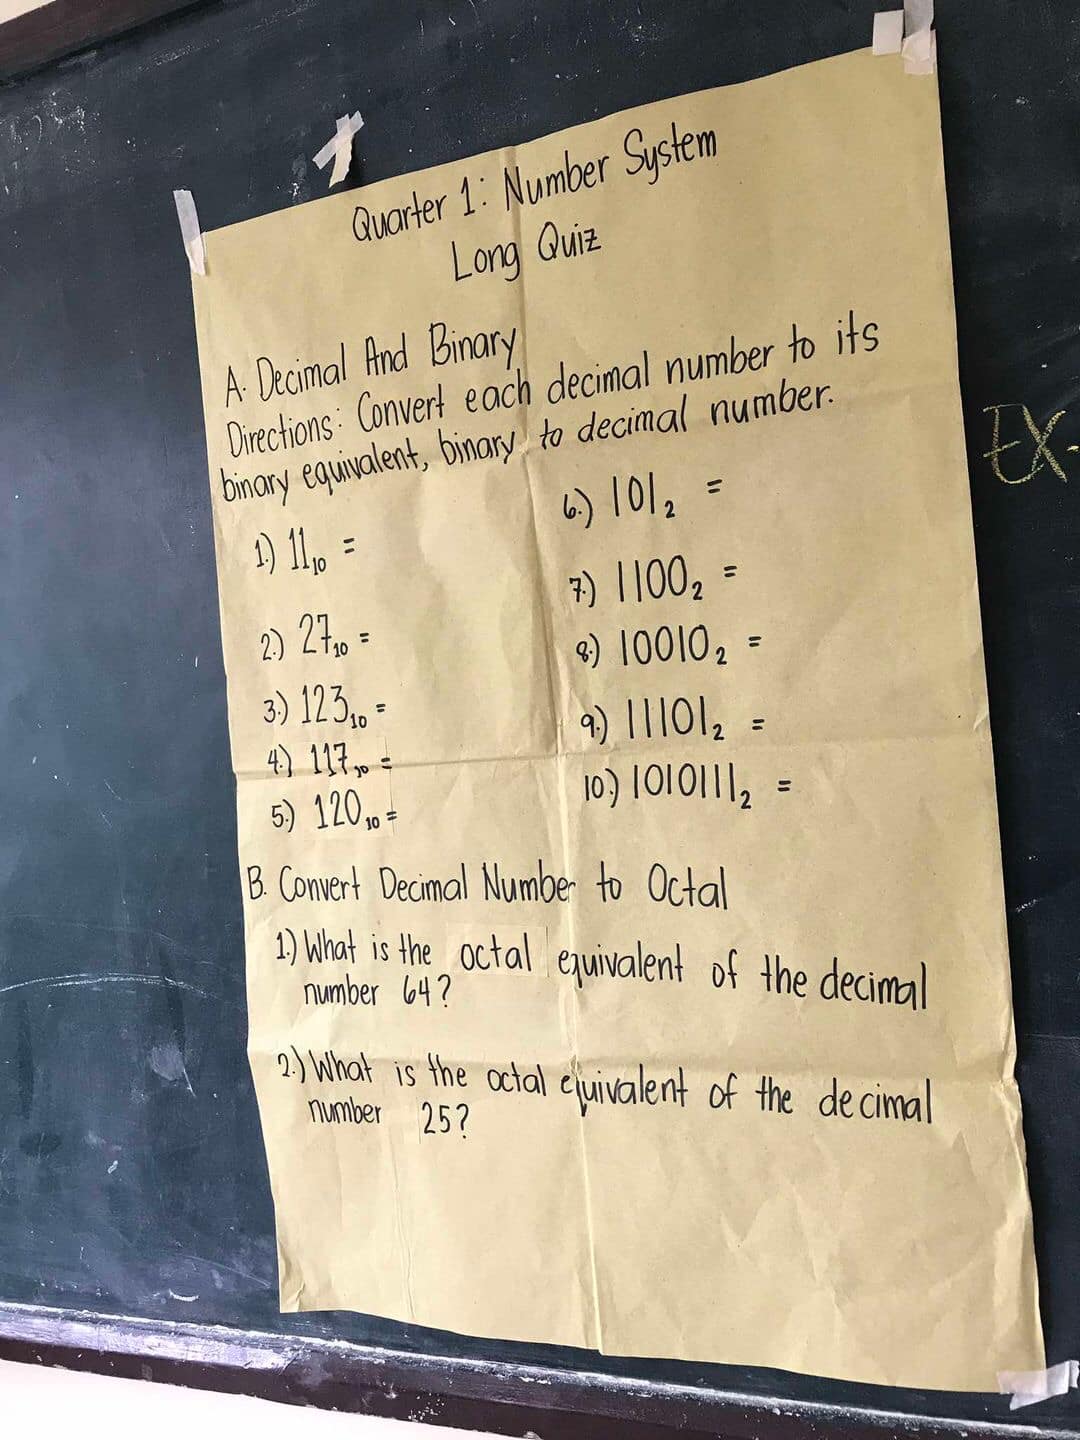 Quarter 1: Number System
Long Quiz
A. Decimal And Binary
Directions: Convert each decimal number to its
binary equivalent, binary to decimal number.
1.) 11₁₀ =
2.) 27₁₀ =
3.) 123₁₀ =
4.) 117₁₀ =
5.) 120₁₀ =
6.) 101₂ =
7.) 1100₂ =
8.) 10010₂ =
9.) 11101₂ =
10.) 1010111₂ =
B. Convert Decimal Number to Octal
1.) What is the octal equivalent of the decimal
number 64?
2.) What is the octal equivalent of the decimal
number 25?
EX.